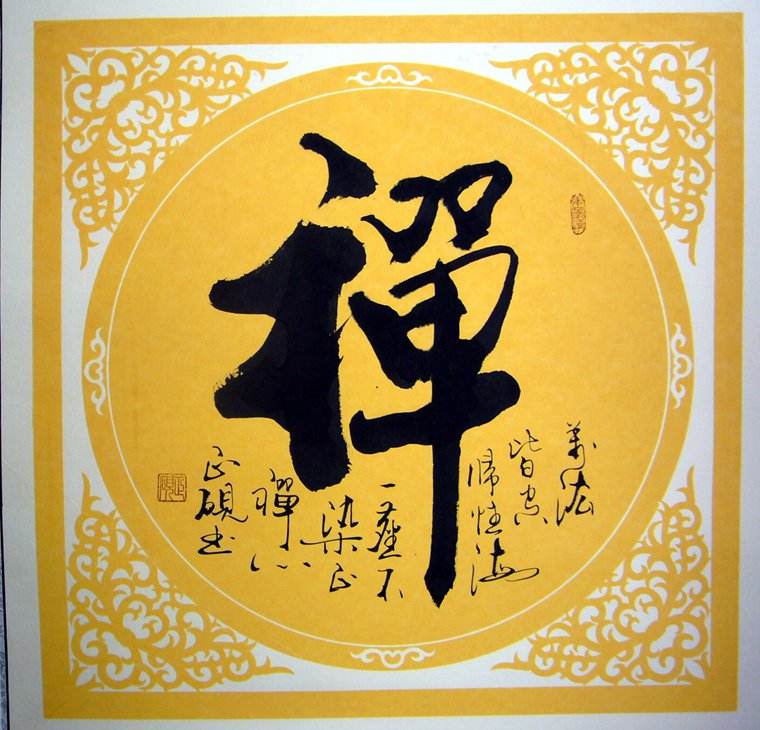 禪
萬法
皆空
歸性海
一塵不
染正
禪心
正硯书